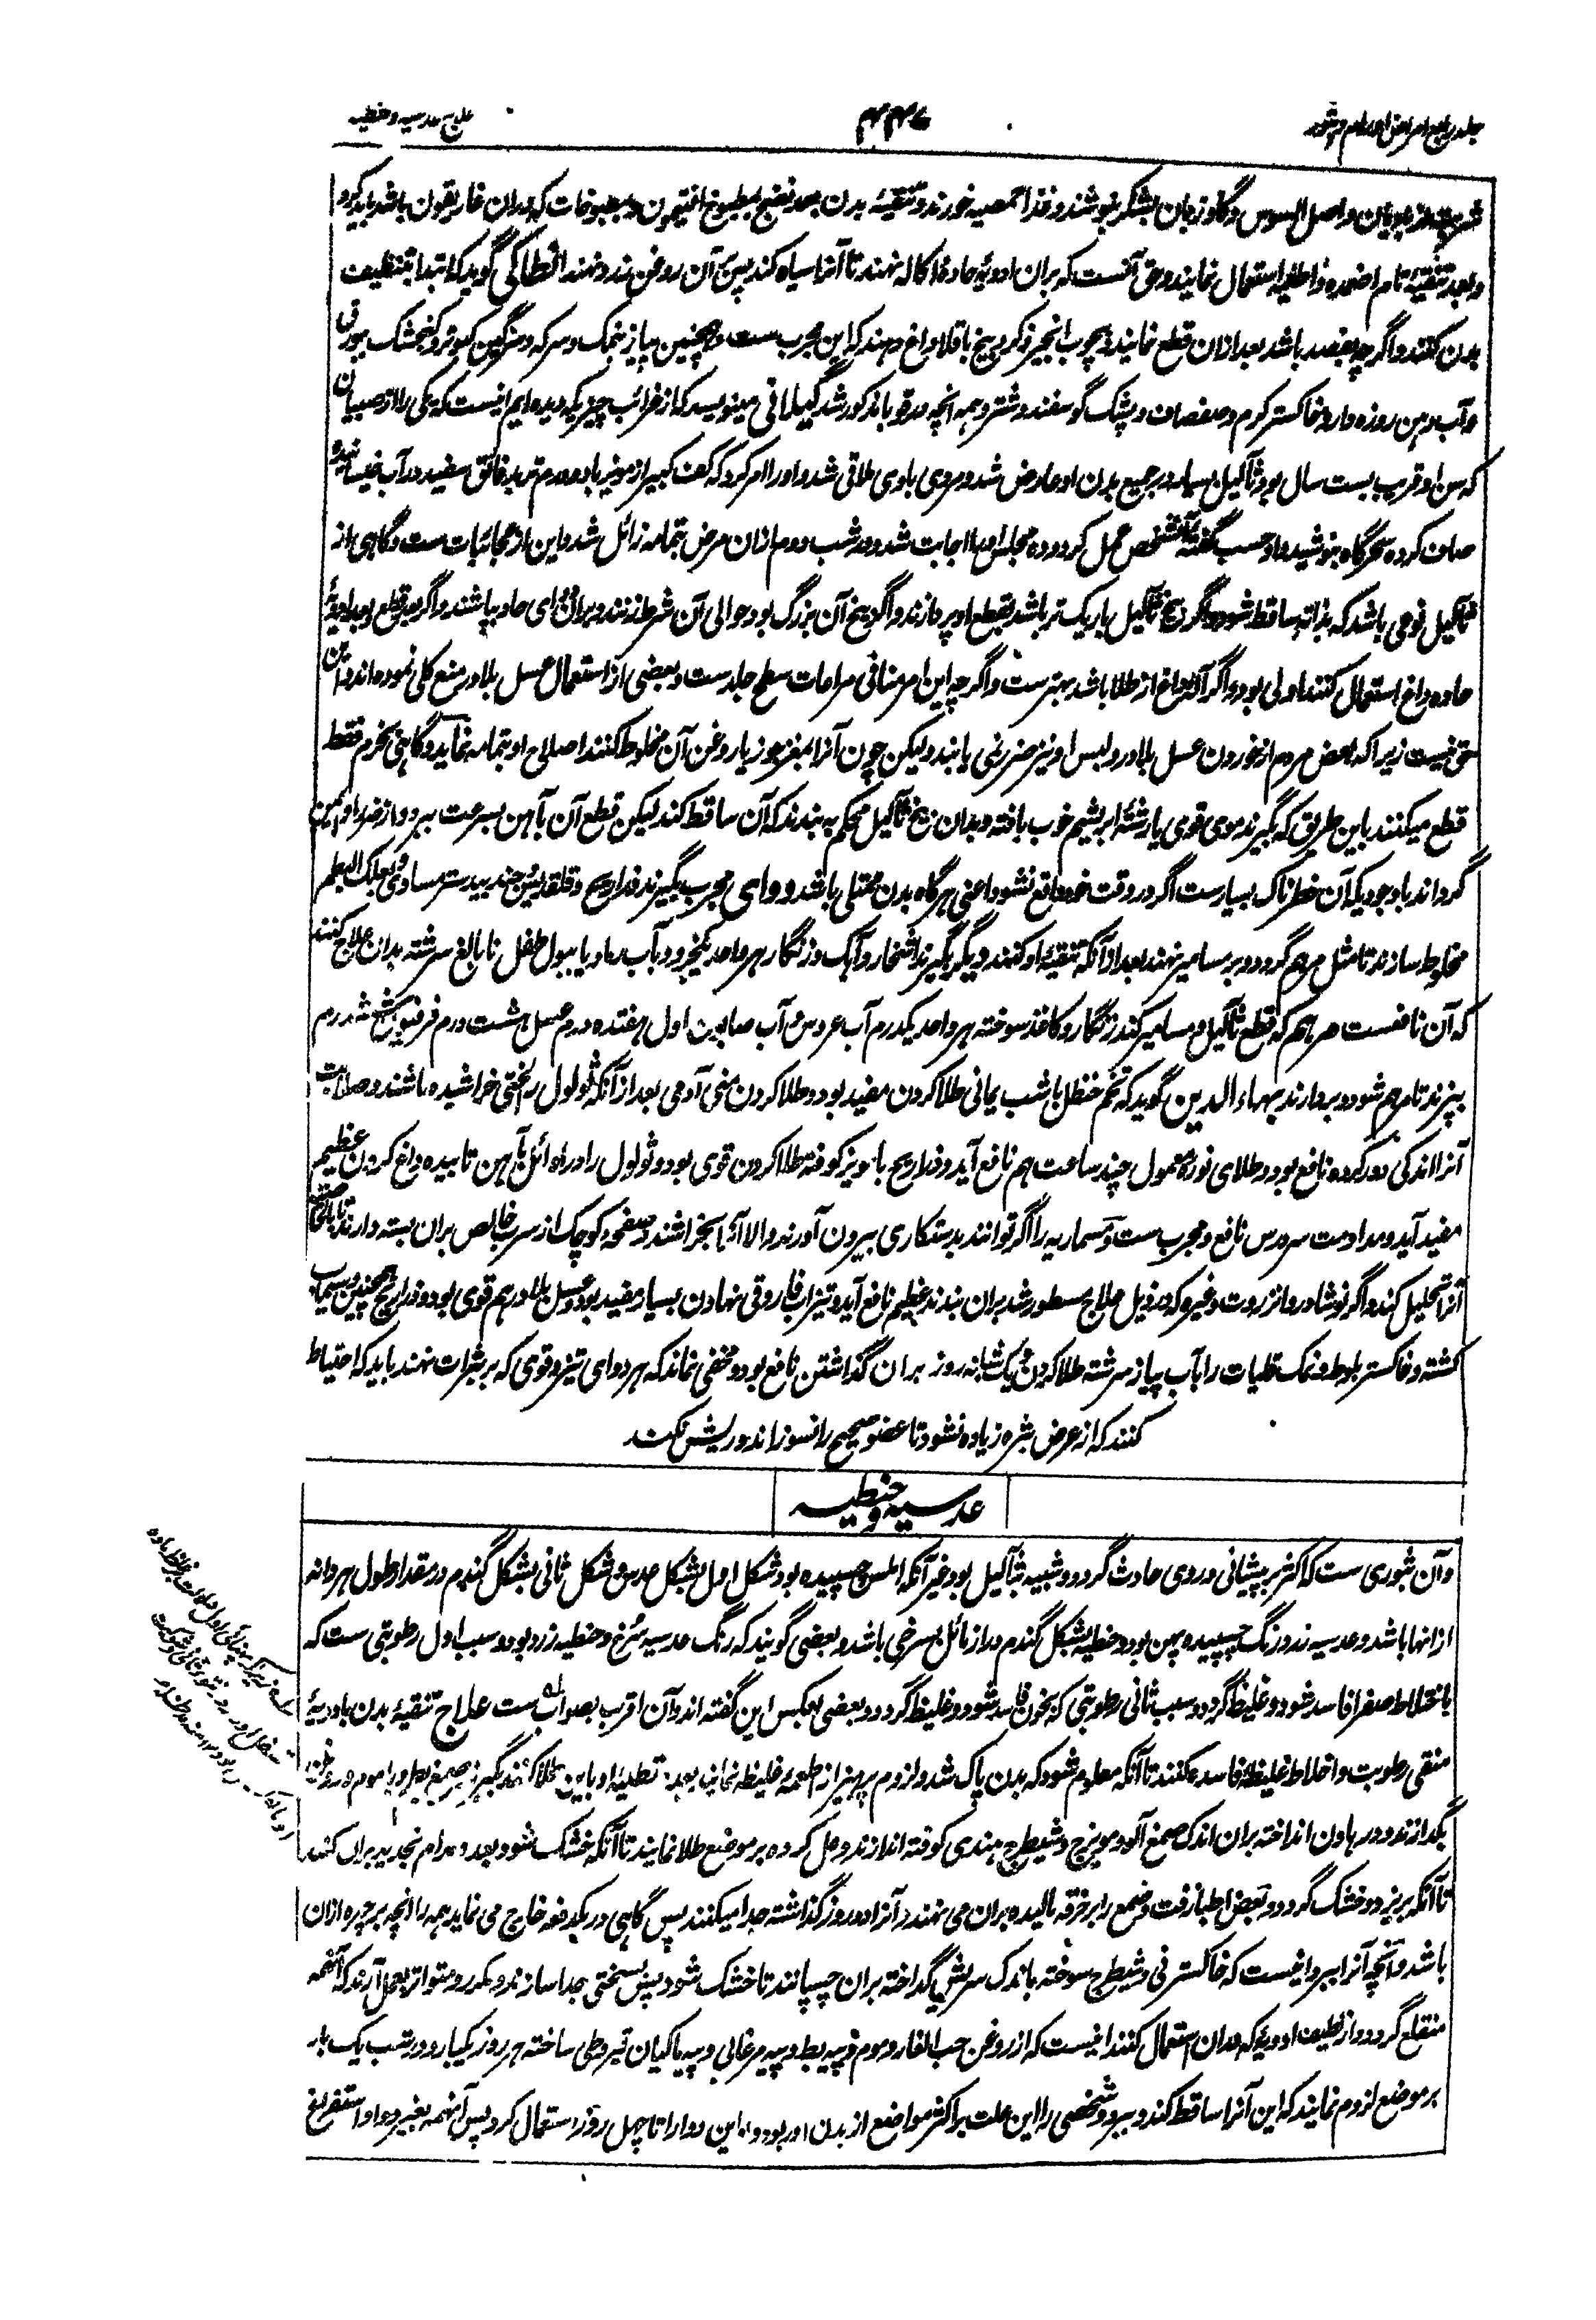 جلد رابع امراض اورام و بثور
۴۴۷
علاج عدسیه و حنطیه
شربت از بادیان و اصل السوس و گاوزبان بشکر بنوشند و غذا حمصیه خورند و تنقیهٔ بدن بعد نضج بمطبوخ افتیمون و بحبوبات که دران غاریقون باشد باید کرد
و بعد تنقیهٔ تام اضمده و اطلیه استعمال نمایند و حق آنست که بران ادویهٔ حاده اکاله نهند تا آنرا سیاه کند پس بران روغن زرد نهند انطاکی گوید که ابتدا بتنظیف
بدن کنند و اگرچه بفصد باشد بعد ازان قطع نمایند و بچوب انجیر و کرم و بیخ باقلا داغ دهند که این مجرب ست و همچنین پیاز بنمک و سرکه و سرگین کبوتر و کنجشک ببورق
و آب دهن روزه دار و خاکستر کرم و صفصاف و پشک گوسفند و شتر و همه آنچه در قوبا مذکور شد گیلانی مینویسد که از غرائب چیزیکه دیده ایم اینست که یکی را از صبیان
که سن او قریب بست سال بود ثآلیل بسیار در جمیع بدن او عارض شد و مردی باوی ملاقی شد و او را امر کرد که کف کبیر از مویز با دو درم تربد فائق سفید در آب خیسانیده
صاف کرده سحرگاه بنوشید و او حسب گفته آن شخص عمل کرد و ده مجلس او را اجابت شد و در شب دوم ازان مرض بتمامه زائل شد و این از عجائبات ست و گاهی از
ثآلیل نوعی باشد که بذاته ساقط شود و اگر بیخ ثآلیل باریک تر باشد بقطع او پردازند و اگر بیخ آن بزرگ بود حوالی آن شرط زنند و بران دوای حاد بپاشند و اگر بعد قطع و بعد ادویهٔ
حاده داغ استعمال کنند اولی بود و اگر آله داغ از طلا باشد بهترست و اگرچه این امر منافی مراعات سطح جلدست و بعضی از استعمال عسل بلادر منع کلی نموده اند و این
حق نیست زیرا که بعض مردم از خوردن عسل بلادر و لبس او نیز ضرر نمی یابند و لیکن چون آنرا بمغز جوز یا روغن آن مخلوط کنند اصلاح او بتمامه نماید و گاهی بخرم فقط
قطع میکنند باین طریق که بگیرند موی قوی یا رشتهٔ ابریشم خوب بافته و بدان بیخ ثآلیل محکم به بندند که آن ساقط کند لیکن قطع آن بآهن بسرعت ببرد و از ضرر او ایمن
گرداند باوجودیکه آن خطرناک بسیارست اگر در وقت خود واقع نشود اعنی هرگاه بدن ممتلی باشد دوای مجرب بگیرند ذراریح و قلقدیس و جندبیدستر مساوی و بعلک البطم
مخلوط سازند تا مثل مرهم گردد و بر مسامیر نهند بعد ازآنکه تنقیهٔ او کنند دیگر بگیرند اشخار و آهک و زنگار هر واحد یکجزو و بآب رماد یا ببول طفل نابالغ سرشته بدان علاج کنند
که آن نافعست مرهم که قطع ثآلیل و مسامیر کند زنگار و کاغذ سوخته هر واحد یکدرم آب عروس و آب صابون اول هفتده درم عسل هشت درم فرفیون شش درم
بپزند تا مرهم شود و بردارند بهاء الدین گوید که تخم حنظل باشب یمانی طلا کردن مفید بود و طلا کردن منی آدمی بعد ازآنکه ثولول را بسختی خراشیده باشند و صلابت
آنرا اندکی دور کرده نافع بود و طلای نوره معمول چند ساعت هم نافع آید و ذراریح با مویز کوفته طلا کردن قوی بود و ثولول را در اوائل بآهن تابیده داغ کردن عظیم
مفید آید و مداومت سرمدس نافع و مجرب ست و مسماریه را اگر توانند بدستکاری بیرون آورند والا آنرا بخراشند و صفحه کوچک از سرب خالص بران بسته دارند تا بالخاصیه
آنرا تحلیل کند و اگر نوشادر و انزروت وغیره که در ذیل علاج مسطور شد بران بندند عظیم نافع آید و تیزاب فاروقی نهادن بسیار مفید بود و عسل بلادر هم قوی بود و ذراریح همچنین و سیماب
کشته و خاکستر بلوط و نمک قلیات را بآب پیاز سرشته طلا کردن و یک شبانه روز بران گذاشتن نافع بود و مخفی نماند که هر دوای تیز و قوی که بر بثرات نهند باید که احتیاط
کنند که از عرض بثره زیاده نشود تا عضو صحیح را نسوزاند و ریش نکند
عدسیه و حنطیه
و آن بثوری ست که اکثر بر پیشانی و روی حادث گردد و شبیه بثآلیل بود غیر آنکه املس چسپیده بود شکل اول بشکل عدس و شکل ثانی بشکل گندم در مقدار طول هر دانه
ازانها باشد و عدسیه زرد رنگ چسپیده پهن بود و حنطیه بشکل گندم دراز مائل بسرخی باشد و بعضی گویند که رنگ عدسیه سرخ و حنطیه زرد بود و سبب اول رطوبتی ست که
باختلاط صفرا فاسد شود و غلیظ گردد و سبب ثانی رطوبتی که بخون فاسد شود و غلیظ گردد و بعضی بعکس این گفته اند و آن اقرب بصواب ست علاج تنقیهٔ بدن بادویهٔ
منقی رطوبت و اخلاط غلیظهٔ فاسده کنند تا آنکه معلوم شود که بدن پاک شد و لزوم پرهیز از اطعمهٔ غلیظه نمایند بعده تطلیهٔ او باین طلا کنند بگیرند صمغ بطم و با موم و روغن
بگدازند و در هاون انداخته بران اندک صمغ آلو و مویزج و شیطرج هندی کوفته اندازند و حل کرده بر موضع طلا نمایند تا آنکه خشک شود بعده مدام تجدید بران کنند
تا آنکه بریزد و خشک گردد و بعض اطبا زفت و صمغ را بر خرقه مالیده بران می نهند و آنرا دو روز گذاشته جدا میکنند پس گاهی در یکدفعه خارج می نماید همه را انچه بر چهره ازان
باشد و آنچه آنرا ببرد اینست که خاکستر نی و شیطرج سوخته باندک سریش گداخته بران چسپانند تا خشک شود پس بسختی جدا سازند و مکرر و متواتر بعمل آرند که آنهمه
منقلع گردد و از لطیف ادویه که بدان استعمال کنند اینست که از روغن حب الغار و موم و پیه بط و پیه مرغابی و پیه ماکیان قیروطی ساخته هر روز یکبار و در شب یک بار
بر موضع لزوم نمایند که این آنرا ساقط کند و ببرد و شخصی را این علت بر اکثر مواضع از بدن او بود و او این دوا را تا چهل روز استعمال کرد پس آنهمه بغیر دوا و استفراغ